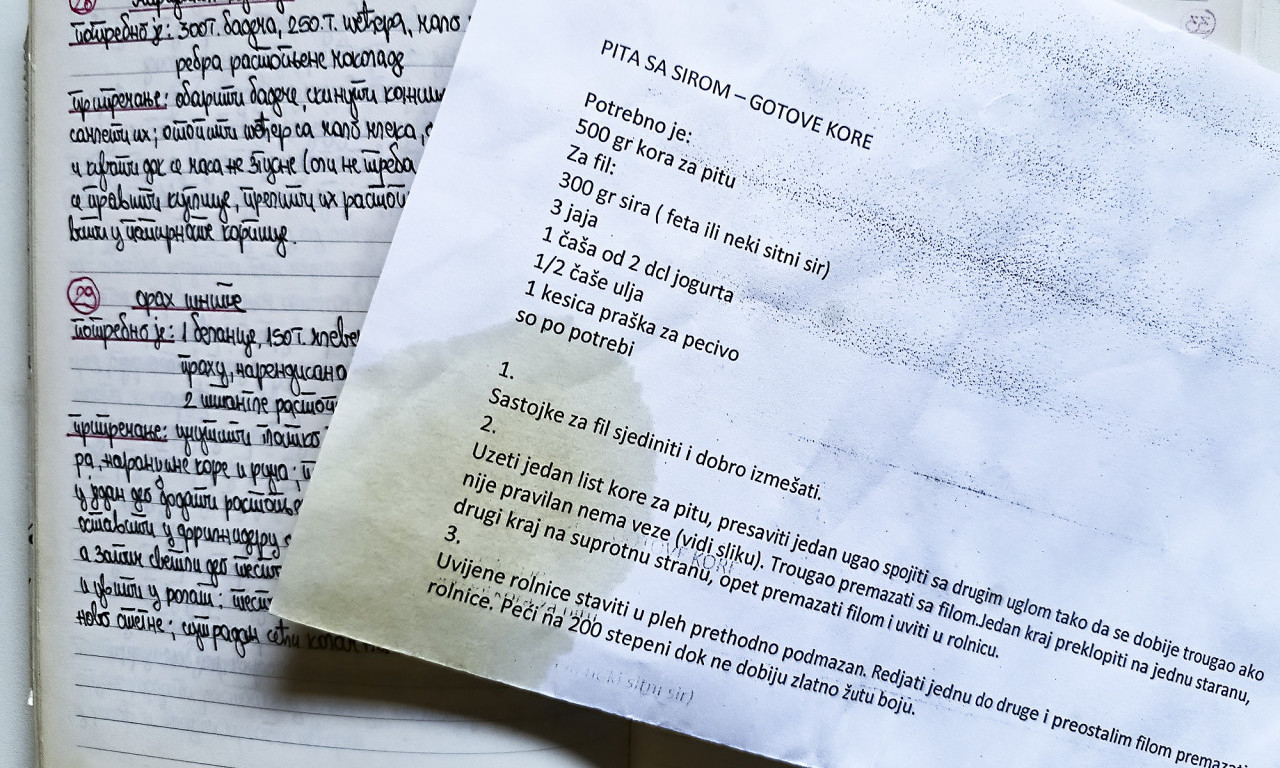 28
потребно је: 300 г. бадема, 250. г. шећера, мало
ребра растопљене чоколаде
припремање: обарити бадеме, скинути кожици
самлети их; отопити шећер са мало млека,
и кувати док се маса не згусне (али не треба
се правити куглице, прелити их растопи
вити у папирнате корпице.
29 орах шните
потребно је: 1 беланце, 150 г. млевен
праху, нарендисано
2 штангле растоп
припремање: умутити
ра, наранџине коре и рума;
у један део додати растопљен
оставити у фрижидеру
а затим светли део
и увити у ролат;
PITA SA SIROM – GOTOVE KORE
Potrebno je:
500 gr kora za pitu
Za fil:
300 gr sira ( feta ili neki sitni sir)
3 jaja
1 čaša od 2 dcl jogurta
1/2 čaše ulja
1 kesica praška za pecivo
so po potrebi
1.
Sastojke za fil sjediniti i dobro izmešati.
2.
Uzeti jedan list kore za pitu, presaviti jedan ugao spojiti sa drugim uglom tako da se dobije trougao ako
nije pravilan nema veze (vidi sliku). Trougao premazati sa filom.Jedan kraj preklopiti na jednu staranu,
drugi kraj na suprotnu stranu, opet premazati filom i uviti u rolnicu.
3.
Uvijene rolnice staviti u pleh prethodno podmazan. Redjati jednu do druge i preostalim filom premazati
rolnice. Peći na 200 stepeni dok ne dobiju zlatno žutu boju.
neki sitni sir)